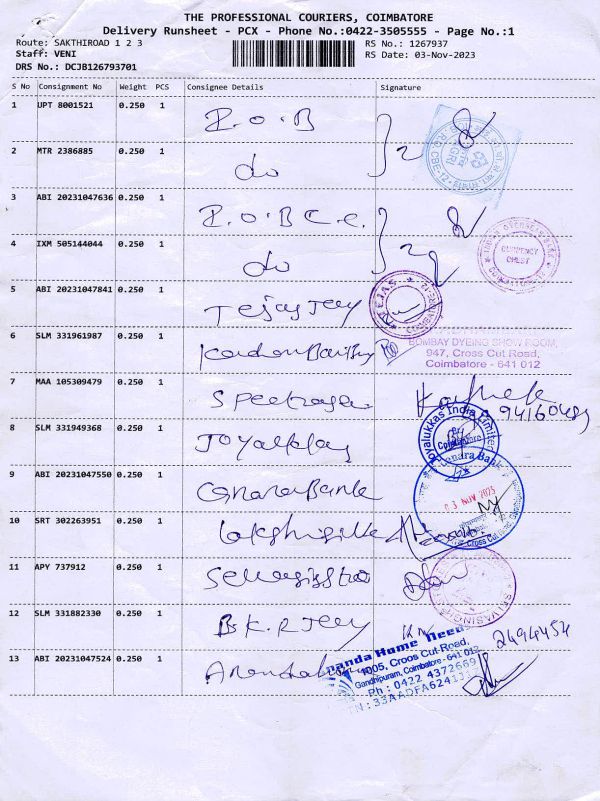 THE PROFESSIONAL COURIERS, COIMBATORE
Delivery Runsheet - PCX - Phone No.:0422-3505555 - Page No.:1
Route: SAKTHIROAD 1 2 3 RS No.: 1267937
Staff: VENI RS Date: 03-Nov-2023
DRS No.: DCJB126793701
S No Consignment No Weight PCS Consignee Details Signature
1 UPT 8001521 0.250 1 I.O.B
2 MTR 2386885 0.250 1 do
3 ABI 20231047636 0.250 1 I.O.B C.C.
4 IXM 505144044 0.250 1 do
INDIAN OVERSEAS BANK
CURRENCY CHEST
5 ABI 20231047841 0.250 1 Tejas Jewy
TEJAS
6 SLM 331961987 0.250 1
BOMBAY DYEING SHOW ROOM,
947, Cross Cut Road,
Coimbatore - 641 012
7 MAA 105309479 0.250 1
8 SLM 331949368 0.250 1 Joyalukkas
Joyalukkas India Limited
Coimbatore
9 ABI 20231047550 0.250 1 Canara Bank
Canara Bank
Cross Cut Road
10 SRT 302263951 0.250 1
11 APY 737912 0.250 1
SELVASINGH
12 SLM 331882330 0.250 1 B.K.R Jewy
2494454
13 ABI 20231047524 0.250 1
nanda Home Needs
1005, Croos Cut Road,
Gandhipuram, Coimbatore - 641 012
Ph : 0422 4372669